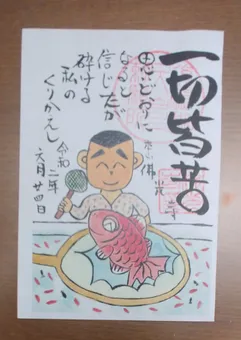 一切皆苦
思いどおりに
なると
信じたが
砕ける
私の
くりかえし
令和二年
六月廿四日